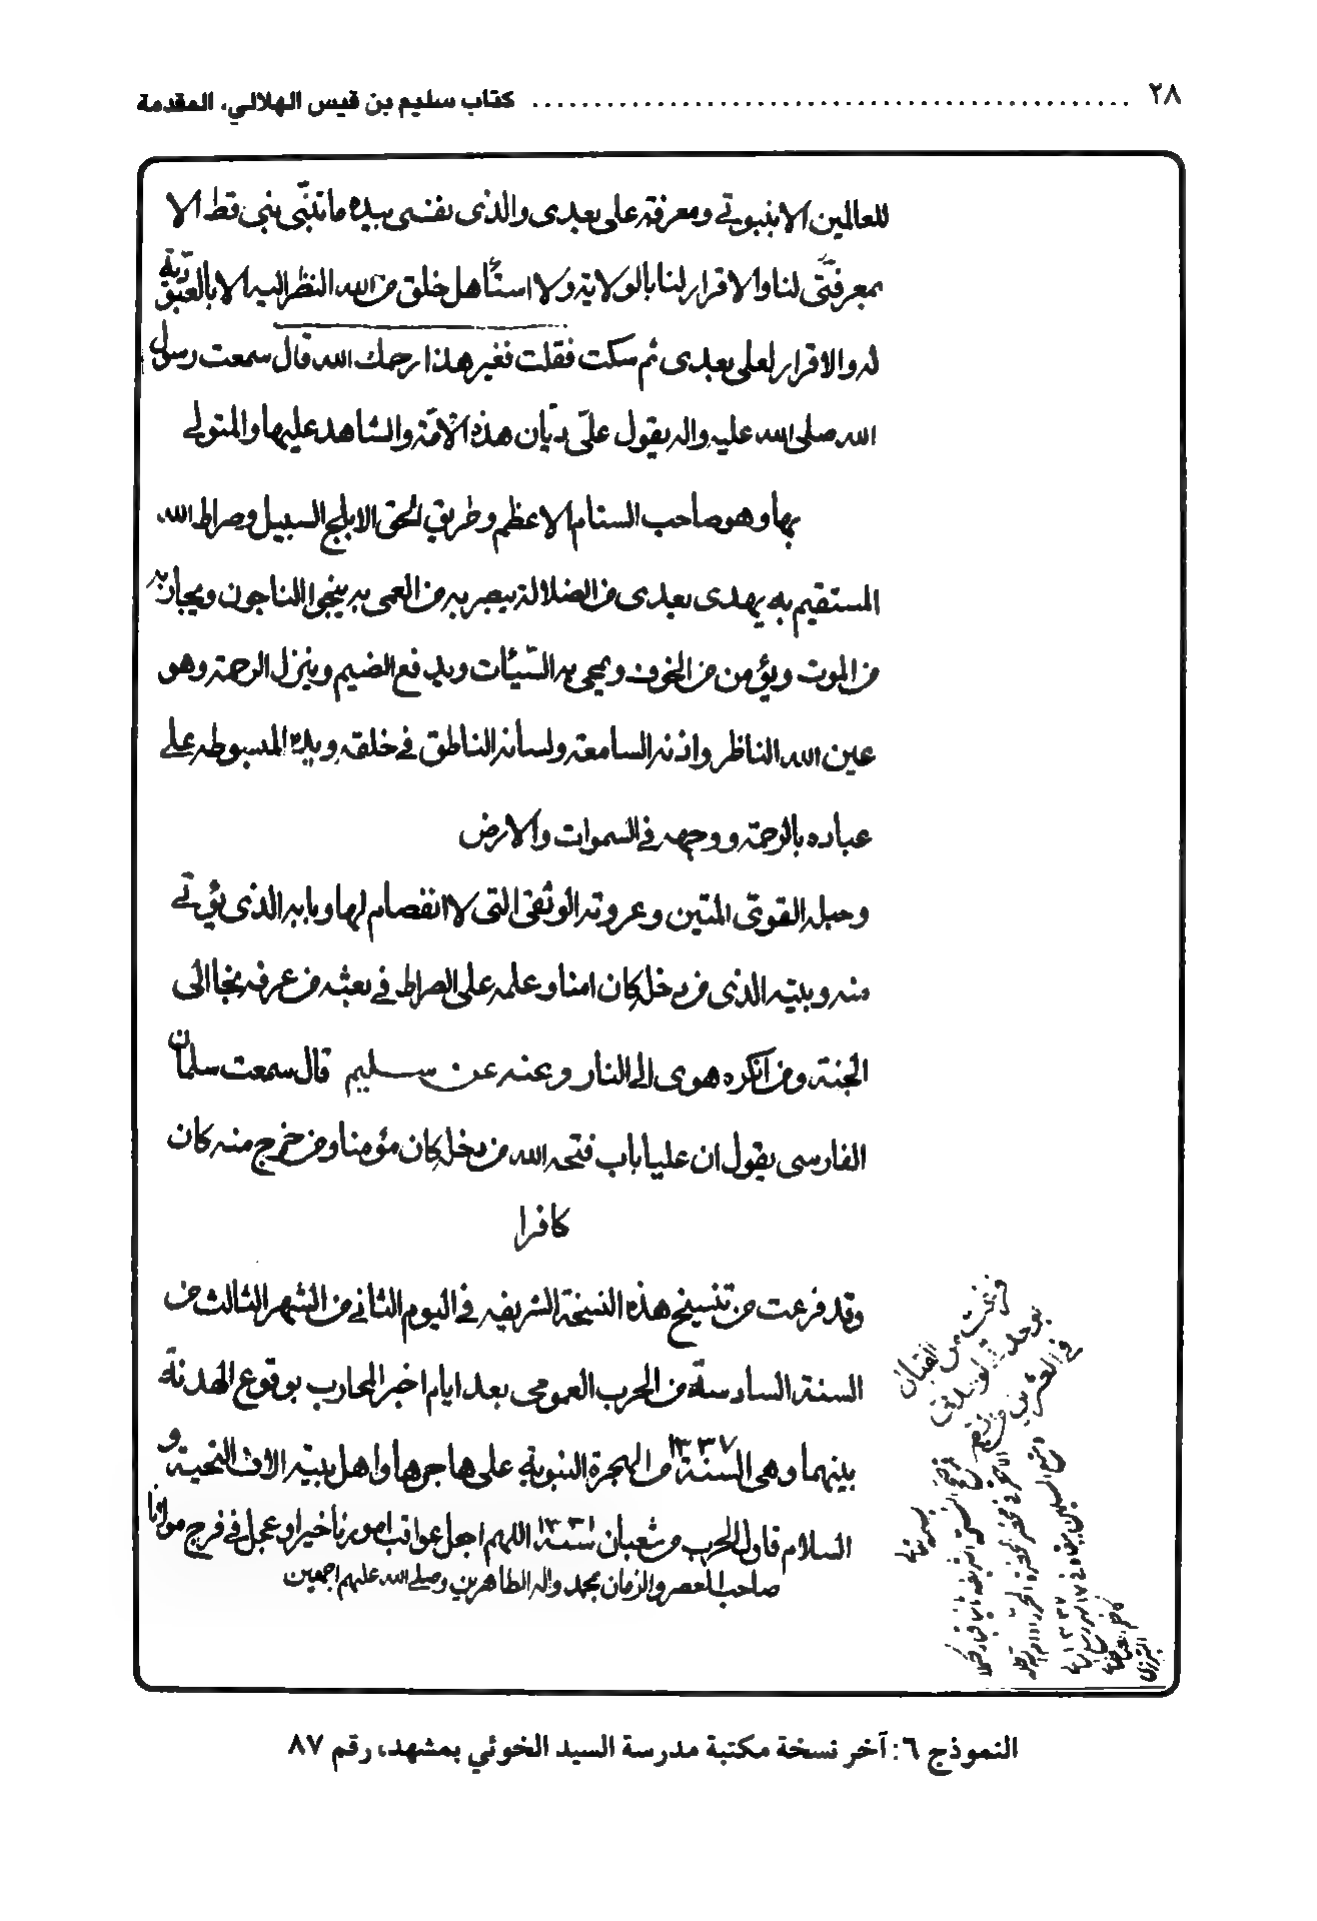 ٢٨ ........ كتاب سليم بن قيس الهلالي، المقدمة
للعالمين الا بنبوتي ومعرفة على بعدى والذى نفسى بيده ما تنبّى نبى قط الا
بمعرفتى لنا والاقرار لنا بالولاية ولا استأهل خلق من الله النظر اليه الا بالعبوّدية
له والاقرار لعلى بعدى ثم سكت فقلت فغير هذا رحمك الله قال سمعت رسول
الله صلى الله عليه واله يقول علىّ ديّان هذه الامّة والشاهد عليها والمتولى
بها وهو صاحب السنام الاعظم وطريق الحق الابلج السبيل وصراط الله
المستقيم به يهدى بعدى من الضلالة يبصر به من العمى به ينجوا الناجون ويجار به
من الموت ويؤمن من الخوف ويمحى به السّيئات ويدفع الضيم وينزل الرحمة وهو
عين الله الناظر واذنه السامعة ولسانه الناطق في خلقه ويده المبسوطه على
عباده بالرحمة ووجهه في السموات والارض
وحبله القوىّ المتين وعروته الوثقى التى لا انفصام لها وبابه الذى يؤتى
منه وبيته الذى من دخله كان امنا وعلمه على الصراط في بعثه من عرفه نجا الى
الجنة ومن انكره هوى الى النار وعنه عن سليم قال سمعت سلمان
الفارسى يقول ان عليا باب فتحه الله من دخله كان مؤمنا ومن خرج منه كان
كافرا
وقد فرغت من تنسيخ هذه النسخة الشريفه في اليوم الثاني من الشهر الثالث من
السنة السادسة من الحرب العمومى بعد ايام اخبر المحارب بوقوع الهدنة
بينهما وهى السنة ١٣٣٧ من الهجرة النبوية على هاجرها واهل بيته الاف التحية و
السلام فاول الحرب من شعبان سنة ١٣٣١ اللهم اجعل عواقب امورنا خيرا وعجل في فرج مولانا
صاحب العصر والزمان بمحمد واله الطاهرين وصلى الله عليهم اجمعين
النموذج ٦: آخر نسخة مكتبة مدرسة السيد الخوئي بمشهد، رقم ٨٧